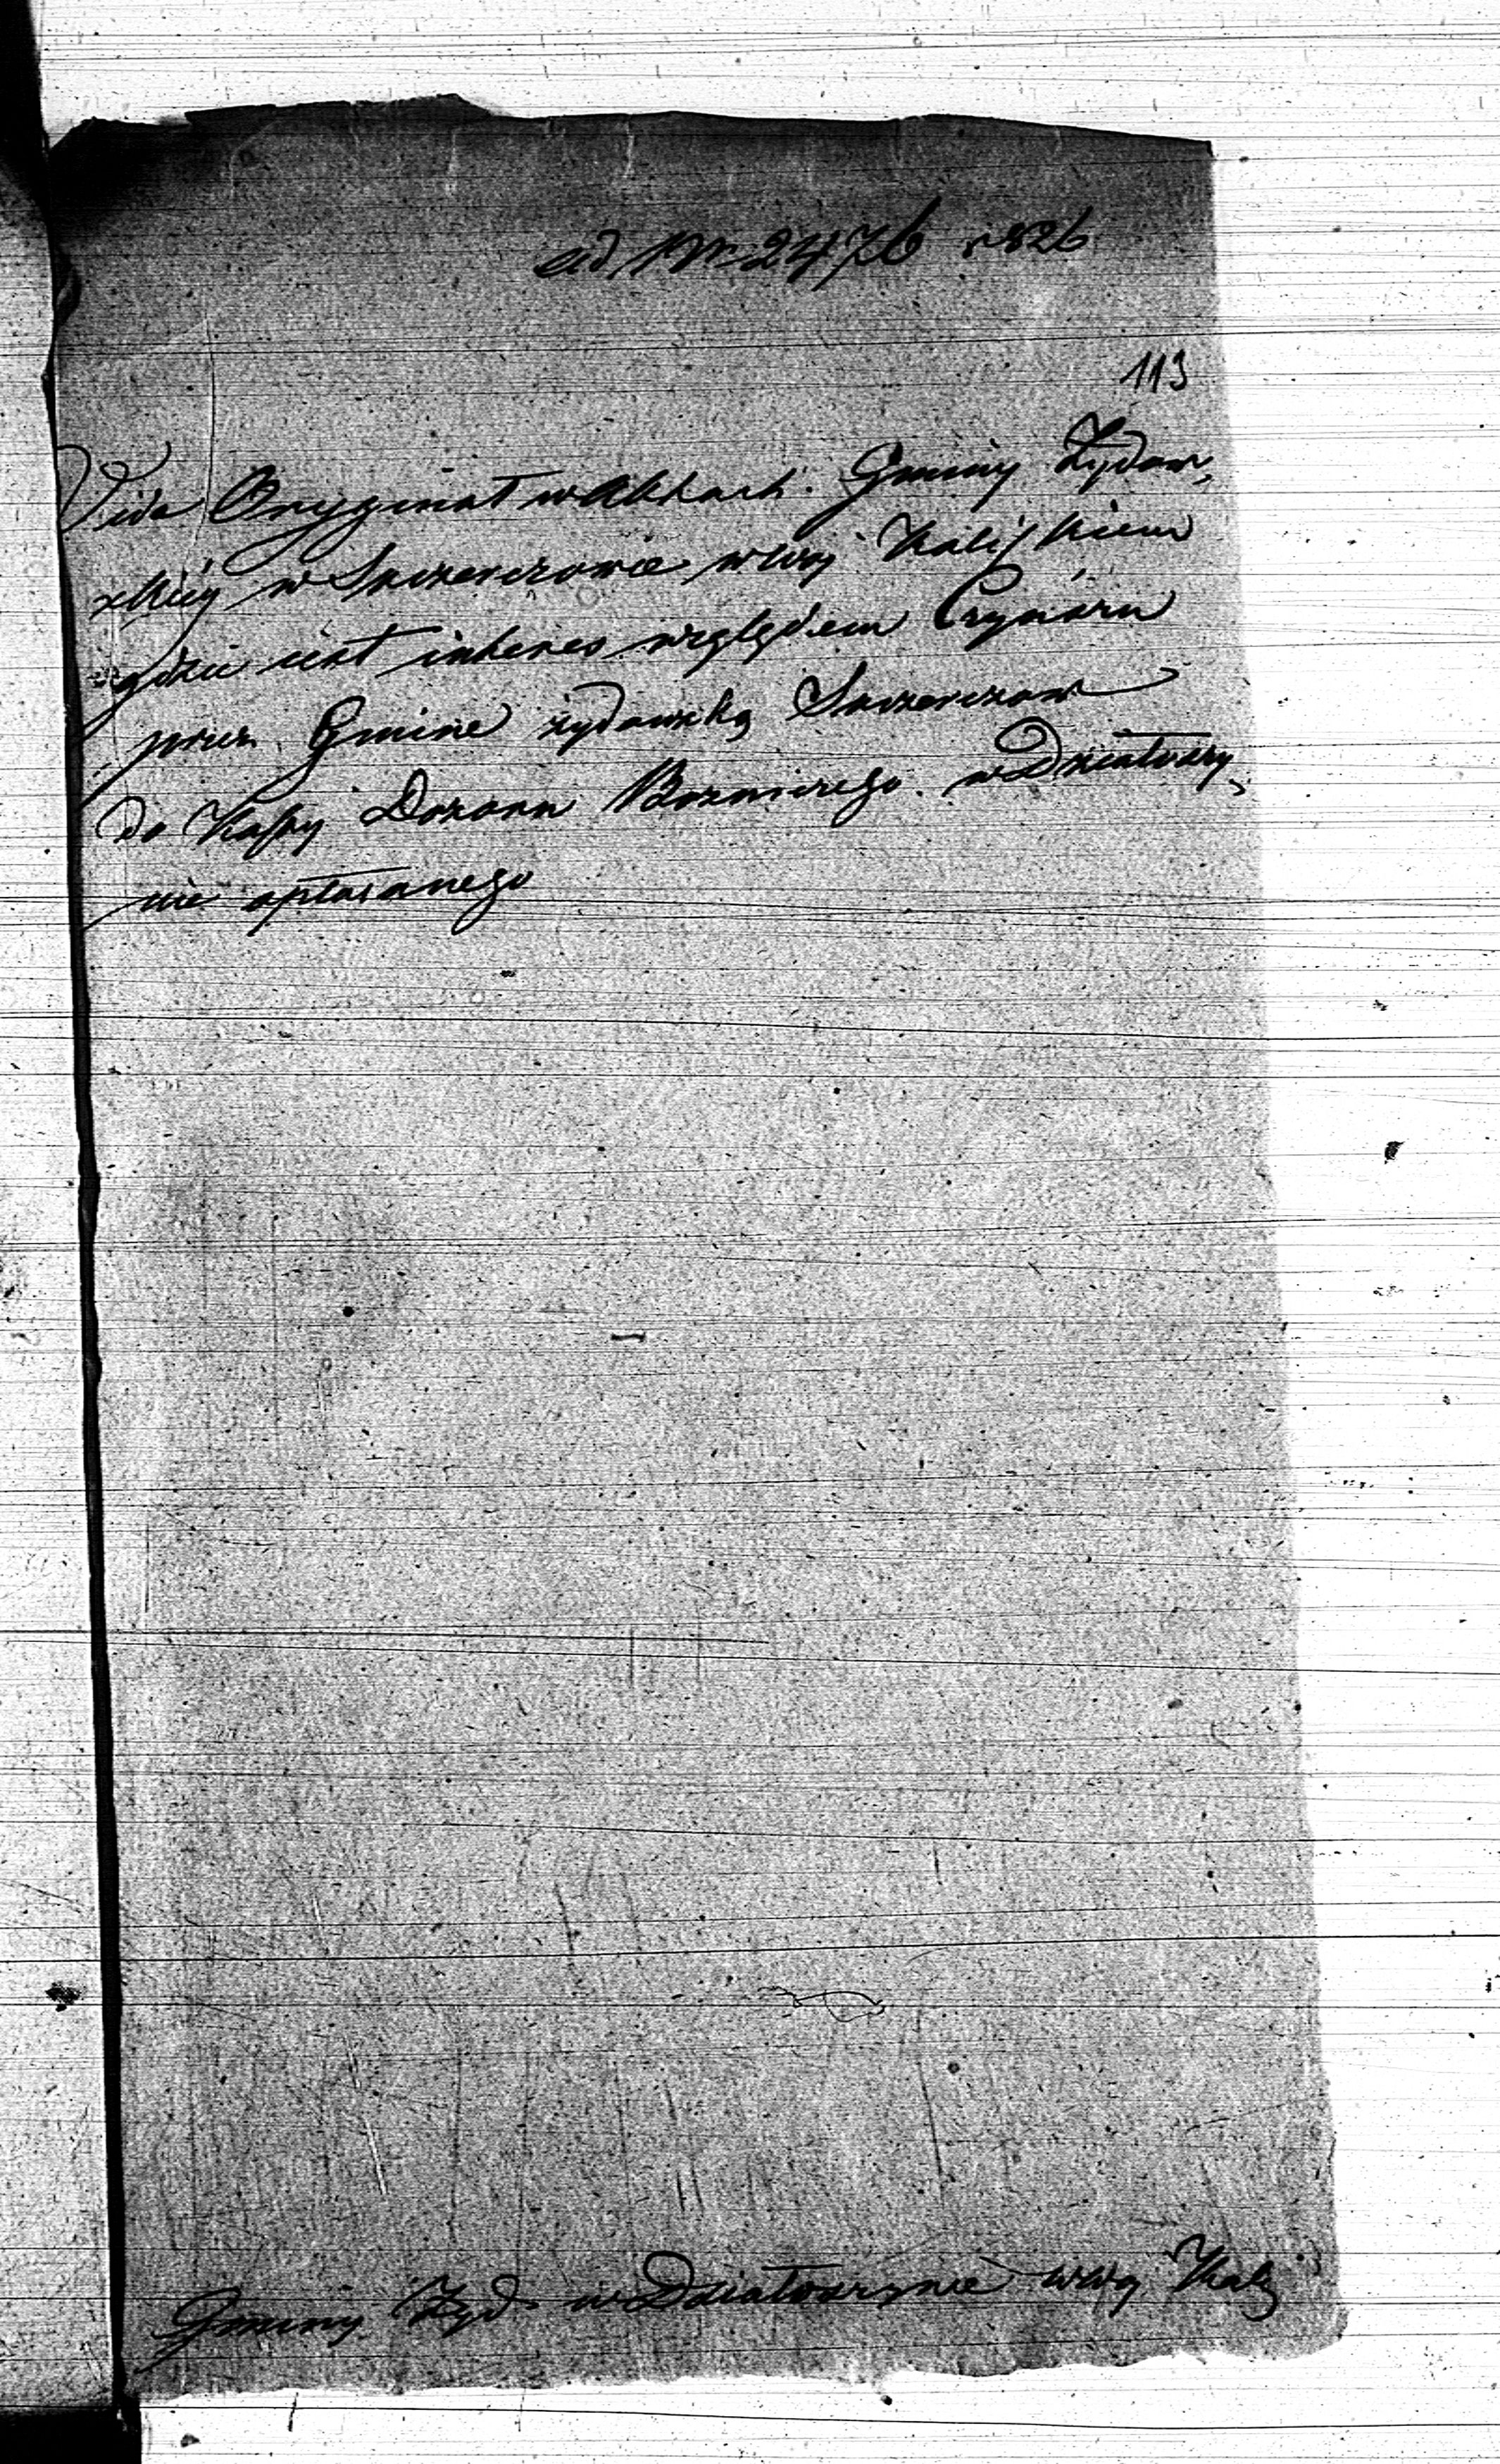 ad Nr 2476 r 826
113
Vide Oryginał w Aktach Gminy Żydow,
skiéy w Szczerczowie w Woj Kaliskiem
gdzie iest interes względem Czynszu
przez Gmine żydowską Szczerczow
do Kassy Dozoru Bozniczego w Działoszy,
nie opłacanego
Gminy Żyd. w Działoszynie w Woj Kali